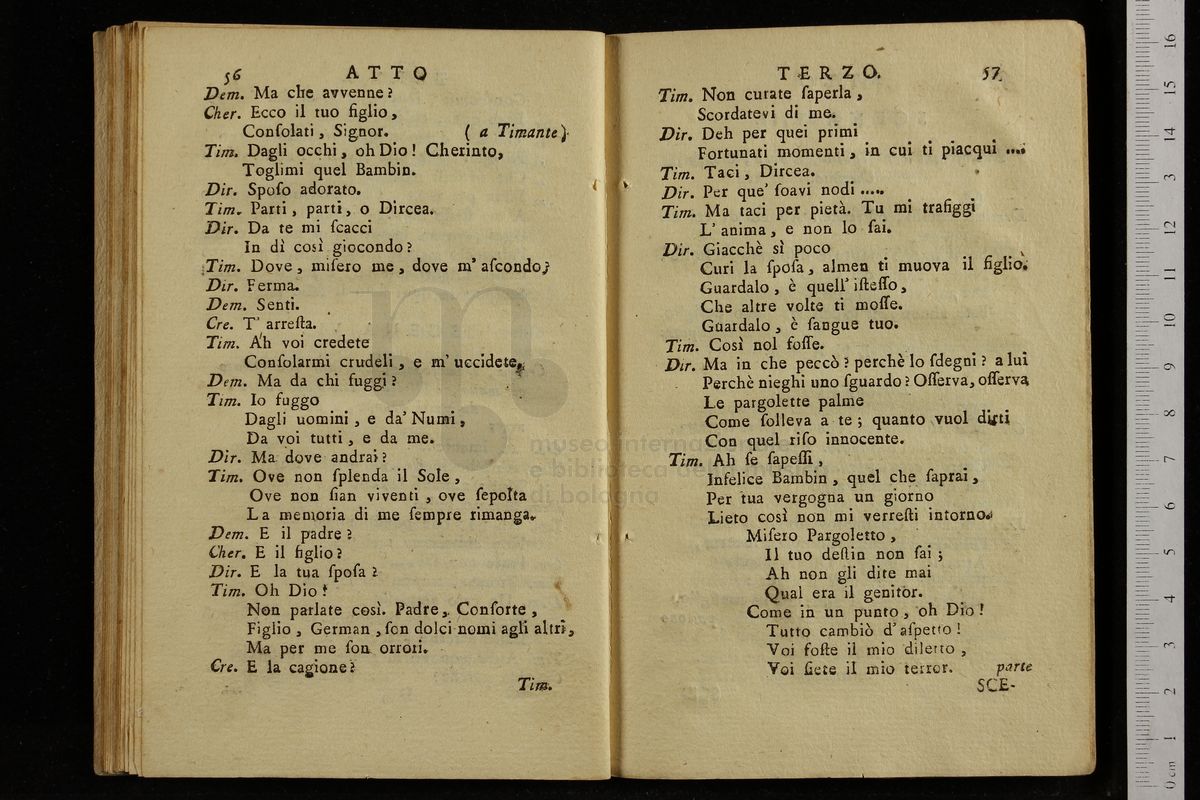 56 ATTO
Dem. Ma che avvenne?
Cher. Ecco il tuo figlio,
Conſolati, Signor. (a Timante)
Tim. Dagli occhi, oh Dio! Cherinto,
Toglimi quel Bambin.
Dir. Spoſo adorato.
Tim. Parti, parti, o Dircea.
Dir. Da te mi ſcacci
In dì così giocondo?
Tim. Dove, miſero me, dove m'aſcondo?
Dir. Ferma.
Dem. Senti.
Cre. T'arreſta.
Tim. Ah voi credete
Conſolarmi crudeli, e m'uccidete.
Dem. Ma da chi fuggi?
Tim. Io fuggo
Dagli uomini, e da' Numi,
Da voi tutti, e da me.
Dir. Ma dove andrai?
Tim. Ove non ſplenda il Sole,
Ove non ſian viventi, ove ſepolta
La memoria di me ſempre rimanga.
Dem. E il padre?
Cher. E il figlio?
Dir. E la tua ſpoſa?
Tim. Oh Dio!
Non parlate così. Padre, Conſorte,
Figlio, German, ſon dolci nomi agli altri,
Ma per me ſon orrori.
Cre. E la cagione?
Tim.
TERZO. 57
Tim. Non curate ſaperla,
Scordatevi di me.
Dir. Deh per quei primi
Fortunati momenti, in cui ti piacqui ....
Tim. Taci, Dircea.
Dir. Per que' ſoavi nodi .....
Tim. Ma taci per pietà. Tu mi trafiggi
L'anima, e non lo ſai.
Dir. Giacchè sì poco
Curi la ſpoſa, almen ti muova il figlio.
Guardalo, è quell' iſteſſo,
Che altre volte ti moſſe.
Guardalo, è ſangue tuo.
Tim. Così nol foſſe.
Dir. Ma in che peccò? perchè lo ſdegni? a lui
Perchè nieghi uno ſguardo? Oſſerva, oſſerva
Le pargolette palme
Come ſolleva a te; quanto vuol dirti
Con quel riſo innocente.
Tim. Ah ſe ſapeſſi,
Infelice Bambin, quel che ſaprai,
Per tua vergogna un giorno
Lieto così non mi verreſti intorno.
Miſero Pargoletto,
Il tuo deſtin non ſai;
Ah non gli dite mai
Qual era il genitor.
Come in un punto, oh Dio!
Tutto cambiò d'aſpetto!
Voi foſte il mio diletto,
Voi ſiete il mio terror. parte
SCE-
museo interna
e biblioteca de
di bologna